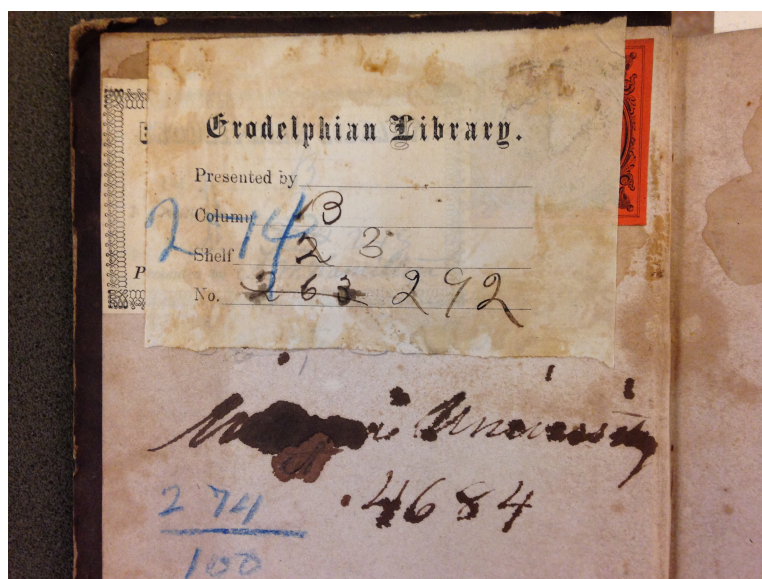 Erodelphian Library.
Presented by
Column B
2-14
Shelf 2 3
No. 263 292
P
Miami University
4684
274
100